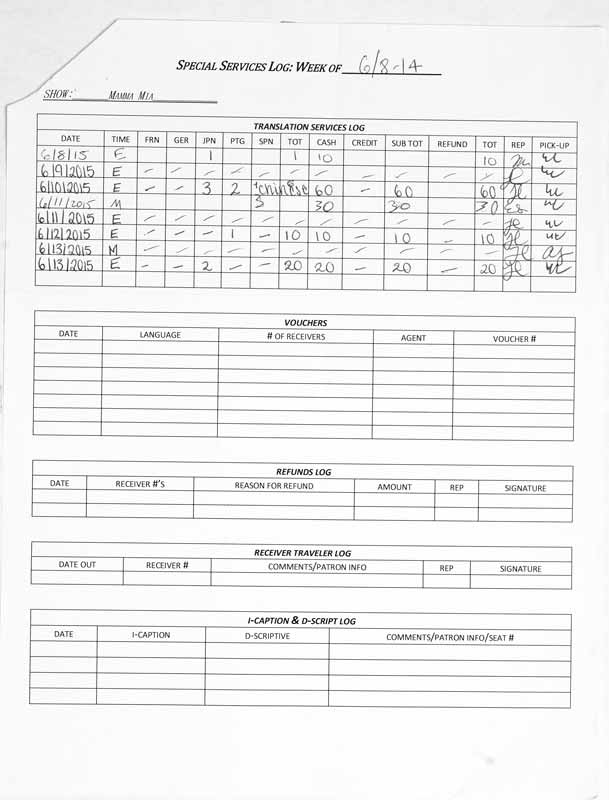 SPECIAL SERVICES LOG: WEEK OF 6/8-14
SHOW: MAMMA MIA
TRANSLATION SERVICES LOG
DATE TIME FRN GER JPN PTG SPN TOT CASH CREDIT SUB TOT REFUND TOT REP PICK-UP
6/8/15 E 1 1 10 10
6/9/2015 E - - - - - - - - - - -
6/10/2015 E - - 3 2 +chinese 60 - 60 60
6/11/2015 M 3 30 30 30
6/11/2015 E - - - - - - - - - - -
6/12/2015 E - - - 1 - 10 10 - 10 - 10
6/13/2015 M - - - - - - - - - - -
6/13/2015 E - - 2 - - 20 20 - 20 - 20
VOUCHERS
DATE LANGUAGE # OF RECEIVERS AGENT VOUCHER #
REFUNDS LOG
DATE RECEIVER #'S REASON FOR REFUND AMOUNT REP SIGNATURE
RECEIVER TRAVELER LOG
DATE OUT RECEIVER # COMMENTS/PATRON INFO REP SIGNATURE
I-CAPTION & D-SCRIPT LOG
DATE I-CAPTION D-SCRIPTIVE COMMENTS/PATRON INFO/SEAT #